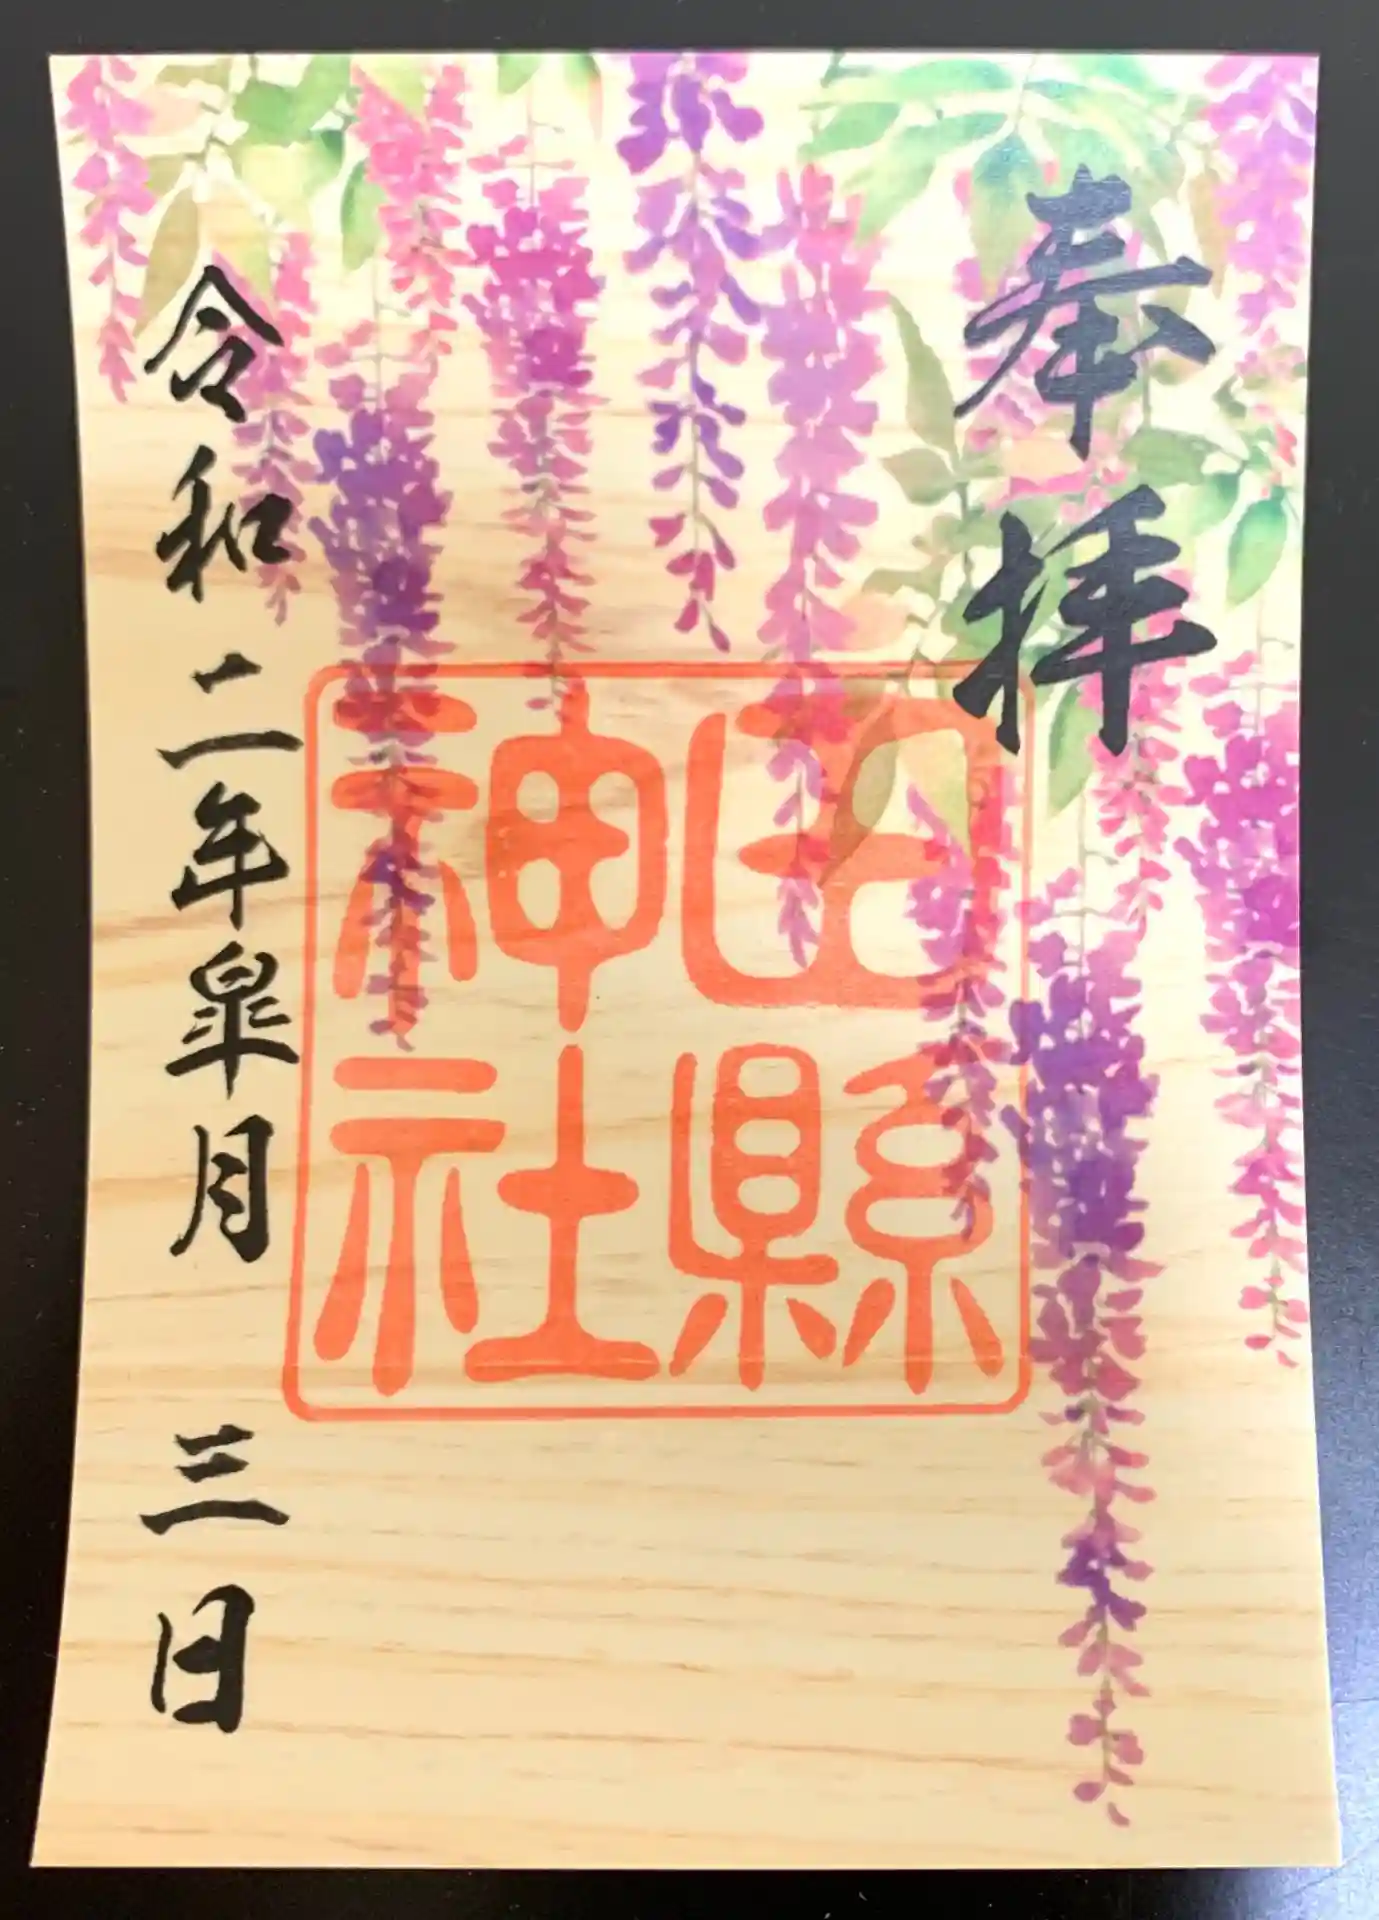 奉拝
田縣
神社
令和二年皐月三日